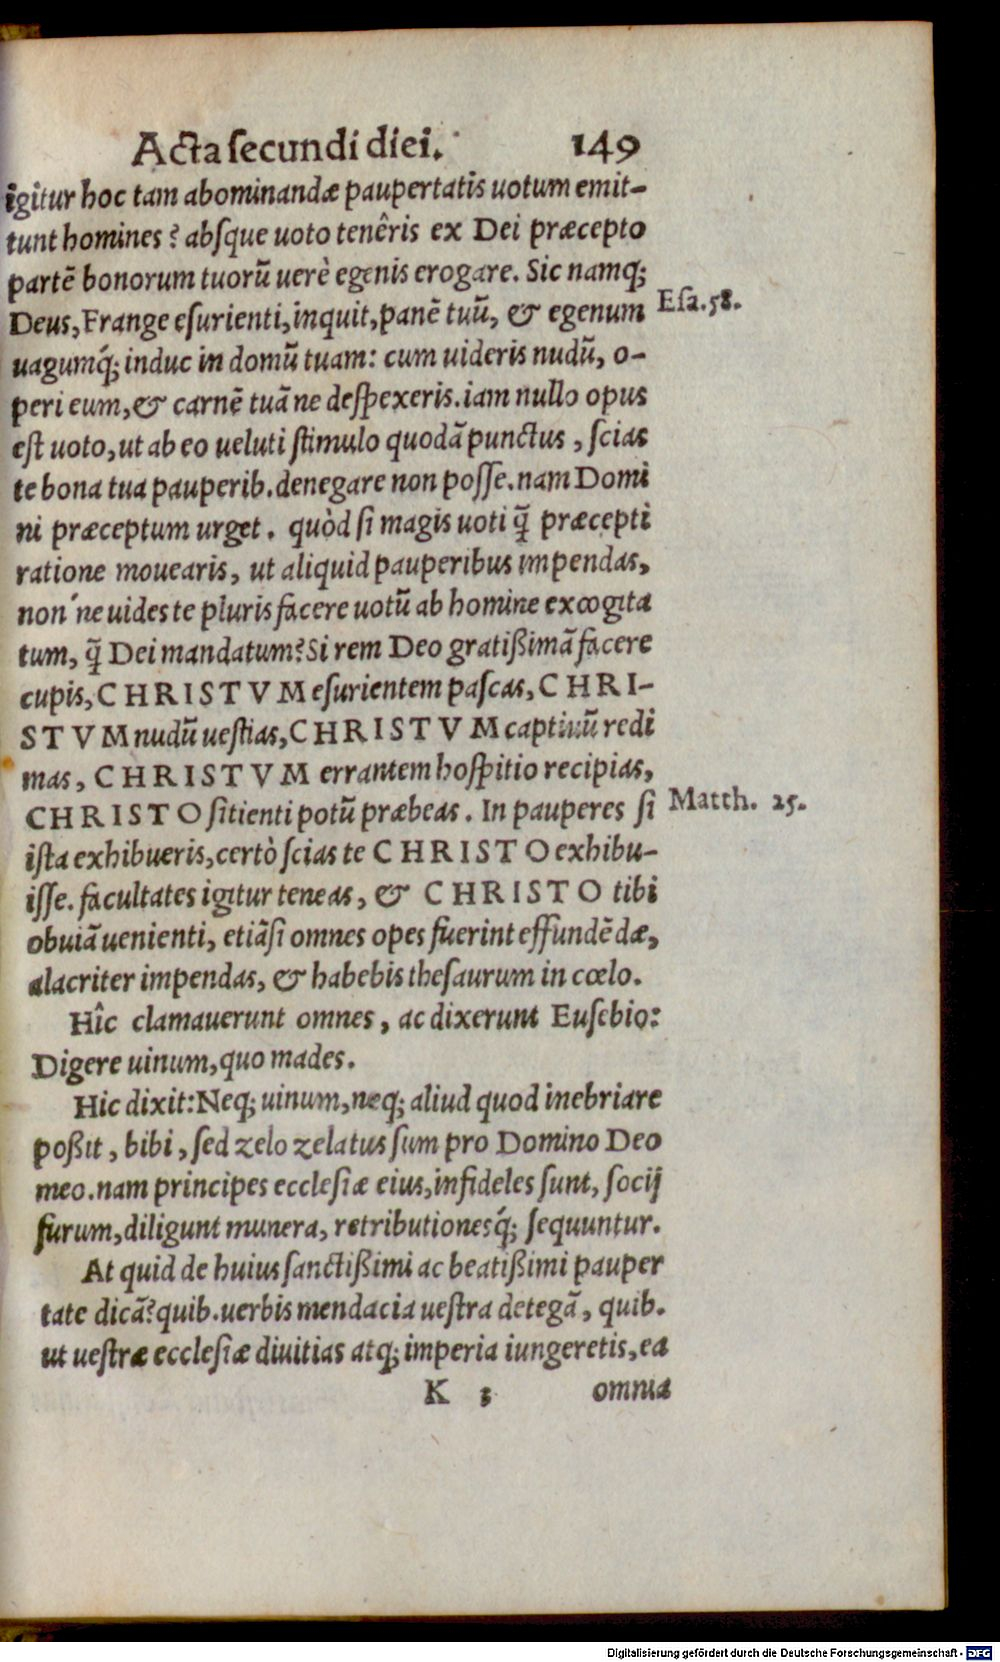 Acta ſecundi diei. 149
igitur hoc tam abominandæ paupertatis uotum emit-
tunt homines? abſque uoto tenêris ex Dei præcepto
partē bonorum tuorū uerè egenis erogare. Sic namq;
Deus, Frange eſurienti, inquit, panē tuū, & egenum
Eſa. 58.
uagumq́; induc in domū tuam: cum uideris nudū, o-
peri eum, & carnē tuā ne deſpexeris. iam nullo opus
eſt uoto, ut ab eo ueluti ſtimulo quodā punctus, ſcias
te bona tua pauperib. denegare non poſſe. nam Domi
ni præceptum urget. quòd ſi magis uoti q̄ præcepti
ratione mouearis, ut aliquid pauperibus impendas,
non ́ne uides te pluris facere uotū ab homine excogita
tum, q̄ Dei mandatum? Si rem Deo gratißimā facere
cupis, CHRISTVM eſurientem paſcas, CHRI-
STVM nudū ueſtias, CHRISTVM captiuū redi
mas, CHRISTVM errantem hoſpitio recipias,
CHRISTO ſitienti potū præbeas. In pauperes ſi
Matth. 25.
iſta exhibueris, certò ſcias te CHRISTO exhibu-
iſſe. facultates igitur teneas, & CHRISTO tibi
obuiā uenienti, etiāſi omnes opes fuerint effundēdæ,
alacriter impendas, & habebis theſaurum in cœlo.
Hîc clamauerunt omnes, ac dixerunt Euſebio:
Digere uinum, quo mades.
Hic dixit: Neq; uinum, neq; aliud quod inebriare
poßit, bibi, ſed zelo zelatus ſum pro Domino Deo
meo. nam principes eccleſiæ eius, infideles ſunt, ſocij
furum, diligunt munera, retributionesq́; ſequuntur.
At quid de huius ſanctißimi ac beatißimi pauper
tate dicā? quib. uerbis mendacia ueſtra detegā, quib.
ut ueſtræ eccleſiæ diuitias atq; imperia iungeretis, ea
K 3 omnia
Digitalisierung gefördert durch die Deutsche Forschungsgemeinschaft - DFG